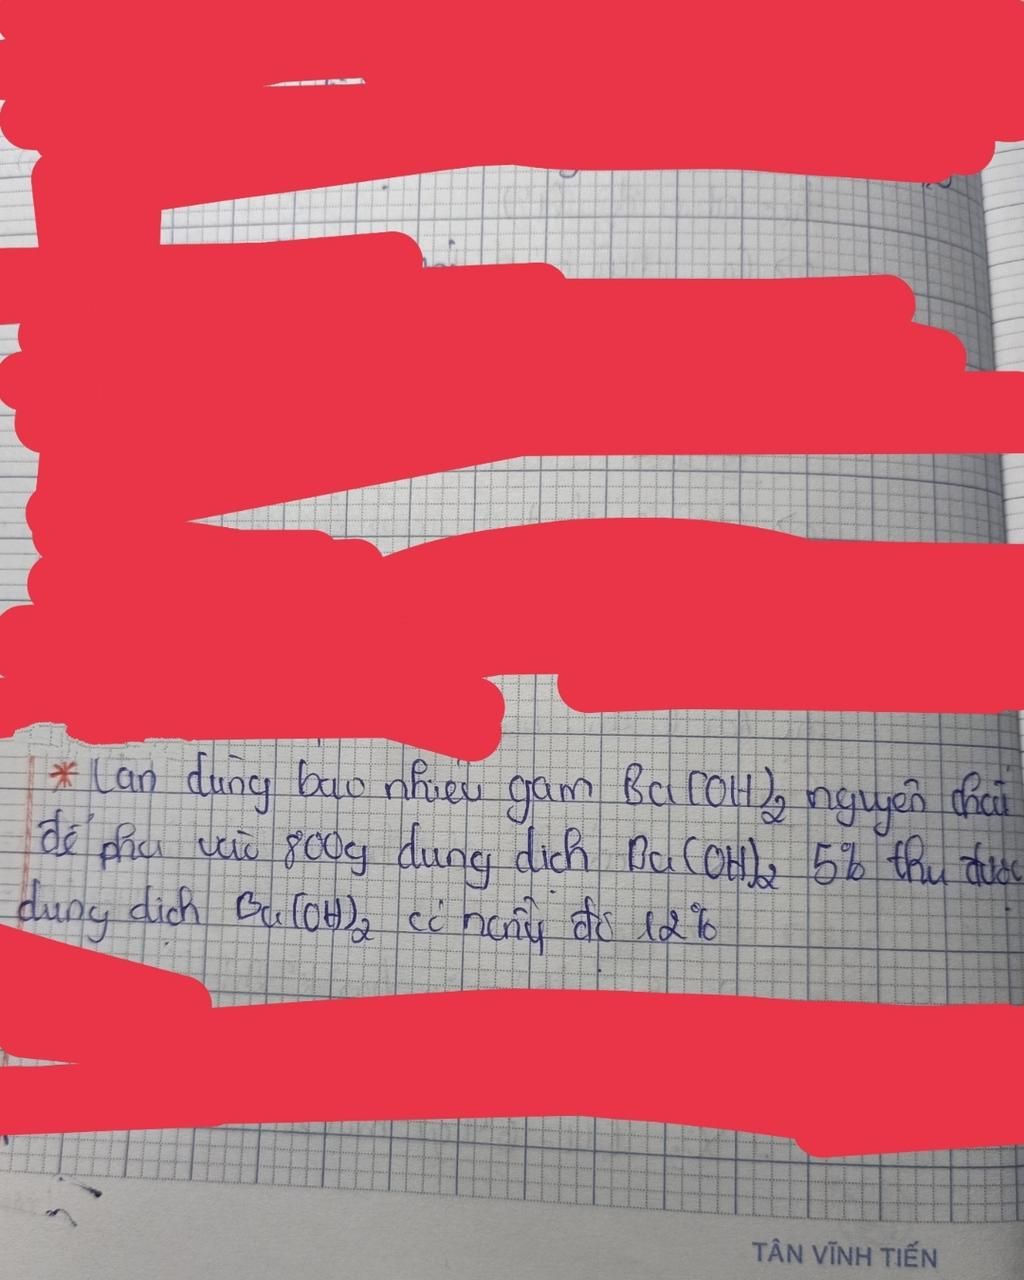 * Cần dùng bao nhiêu gam Ba(OH)2 nguyên chất
để pha vào 800g dung dịch Ba(OH)2 5% thu được
dung dịch Ba(OH)2 có nồng độ 12%
TÂN VĨNH TIẾN